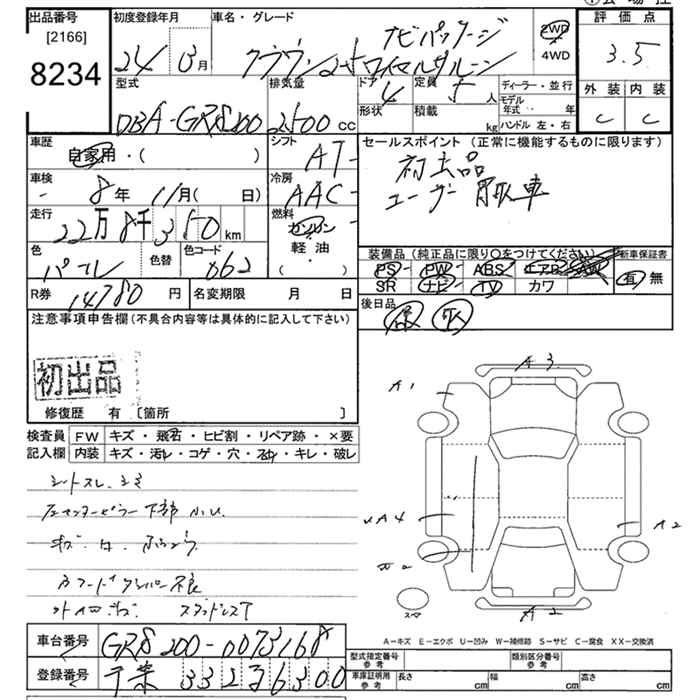 出品番号 初度登録年月 車名・グレード 評価点
[2166]
8234
24 月 クラウン ナビパッケージ 2WD
4WD 3.5
型式 排気量 ドア 4 定員 5 人 ディーラー・並行 外装 内装
形状 積載 kg モデル年式 年
ハンドル 左・右
DBA-GRS200 2500 CC C C
車歴 シフト セールスポイント(正常に機能するものに限ります)
自家用・( ) AT
初出品
車検 冷房
8年 11月( 日) AAC
ユーザー買取車
走行 燃料
22万8千350km ガソリン
軽・油
・( )
色 色替 色コード
パール 062
装備品(純正品に限り〇をつけてください) 新車保証書
PS PW ABS エアB AW 有 無
SR ナビ TV カワ
R券 14780円 名変期限 月 日 後日品
注意事項申告欄(不具合内容等は具体的に記入して下さい)
初出品
修復歴 有 [箇所 ]
A3
A1
検査員記入欄 FW キズ・飛石・ヒビ割・リペア跡・×要
内装 キズ・汚レ・コゲ・穴・スレ・キレ・破レ
シートスレ、シミ
A4 A2
A2
A-キズ E-エクボ U-凹み W-補修跡 S-サビ C-腐食 XX-交換済
車台番号 GRS200-0073168
登録番号 千葉 332 6300
型式指定番号 参考 類別区分番号 参考
車庫証明用 参考 長さ cm 幅 cm 高さ cm